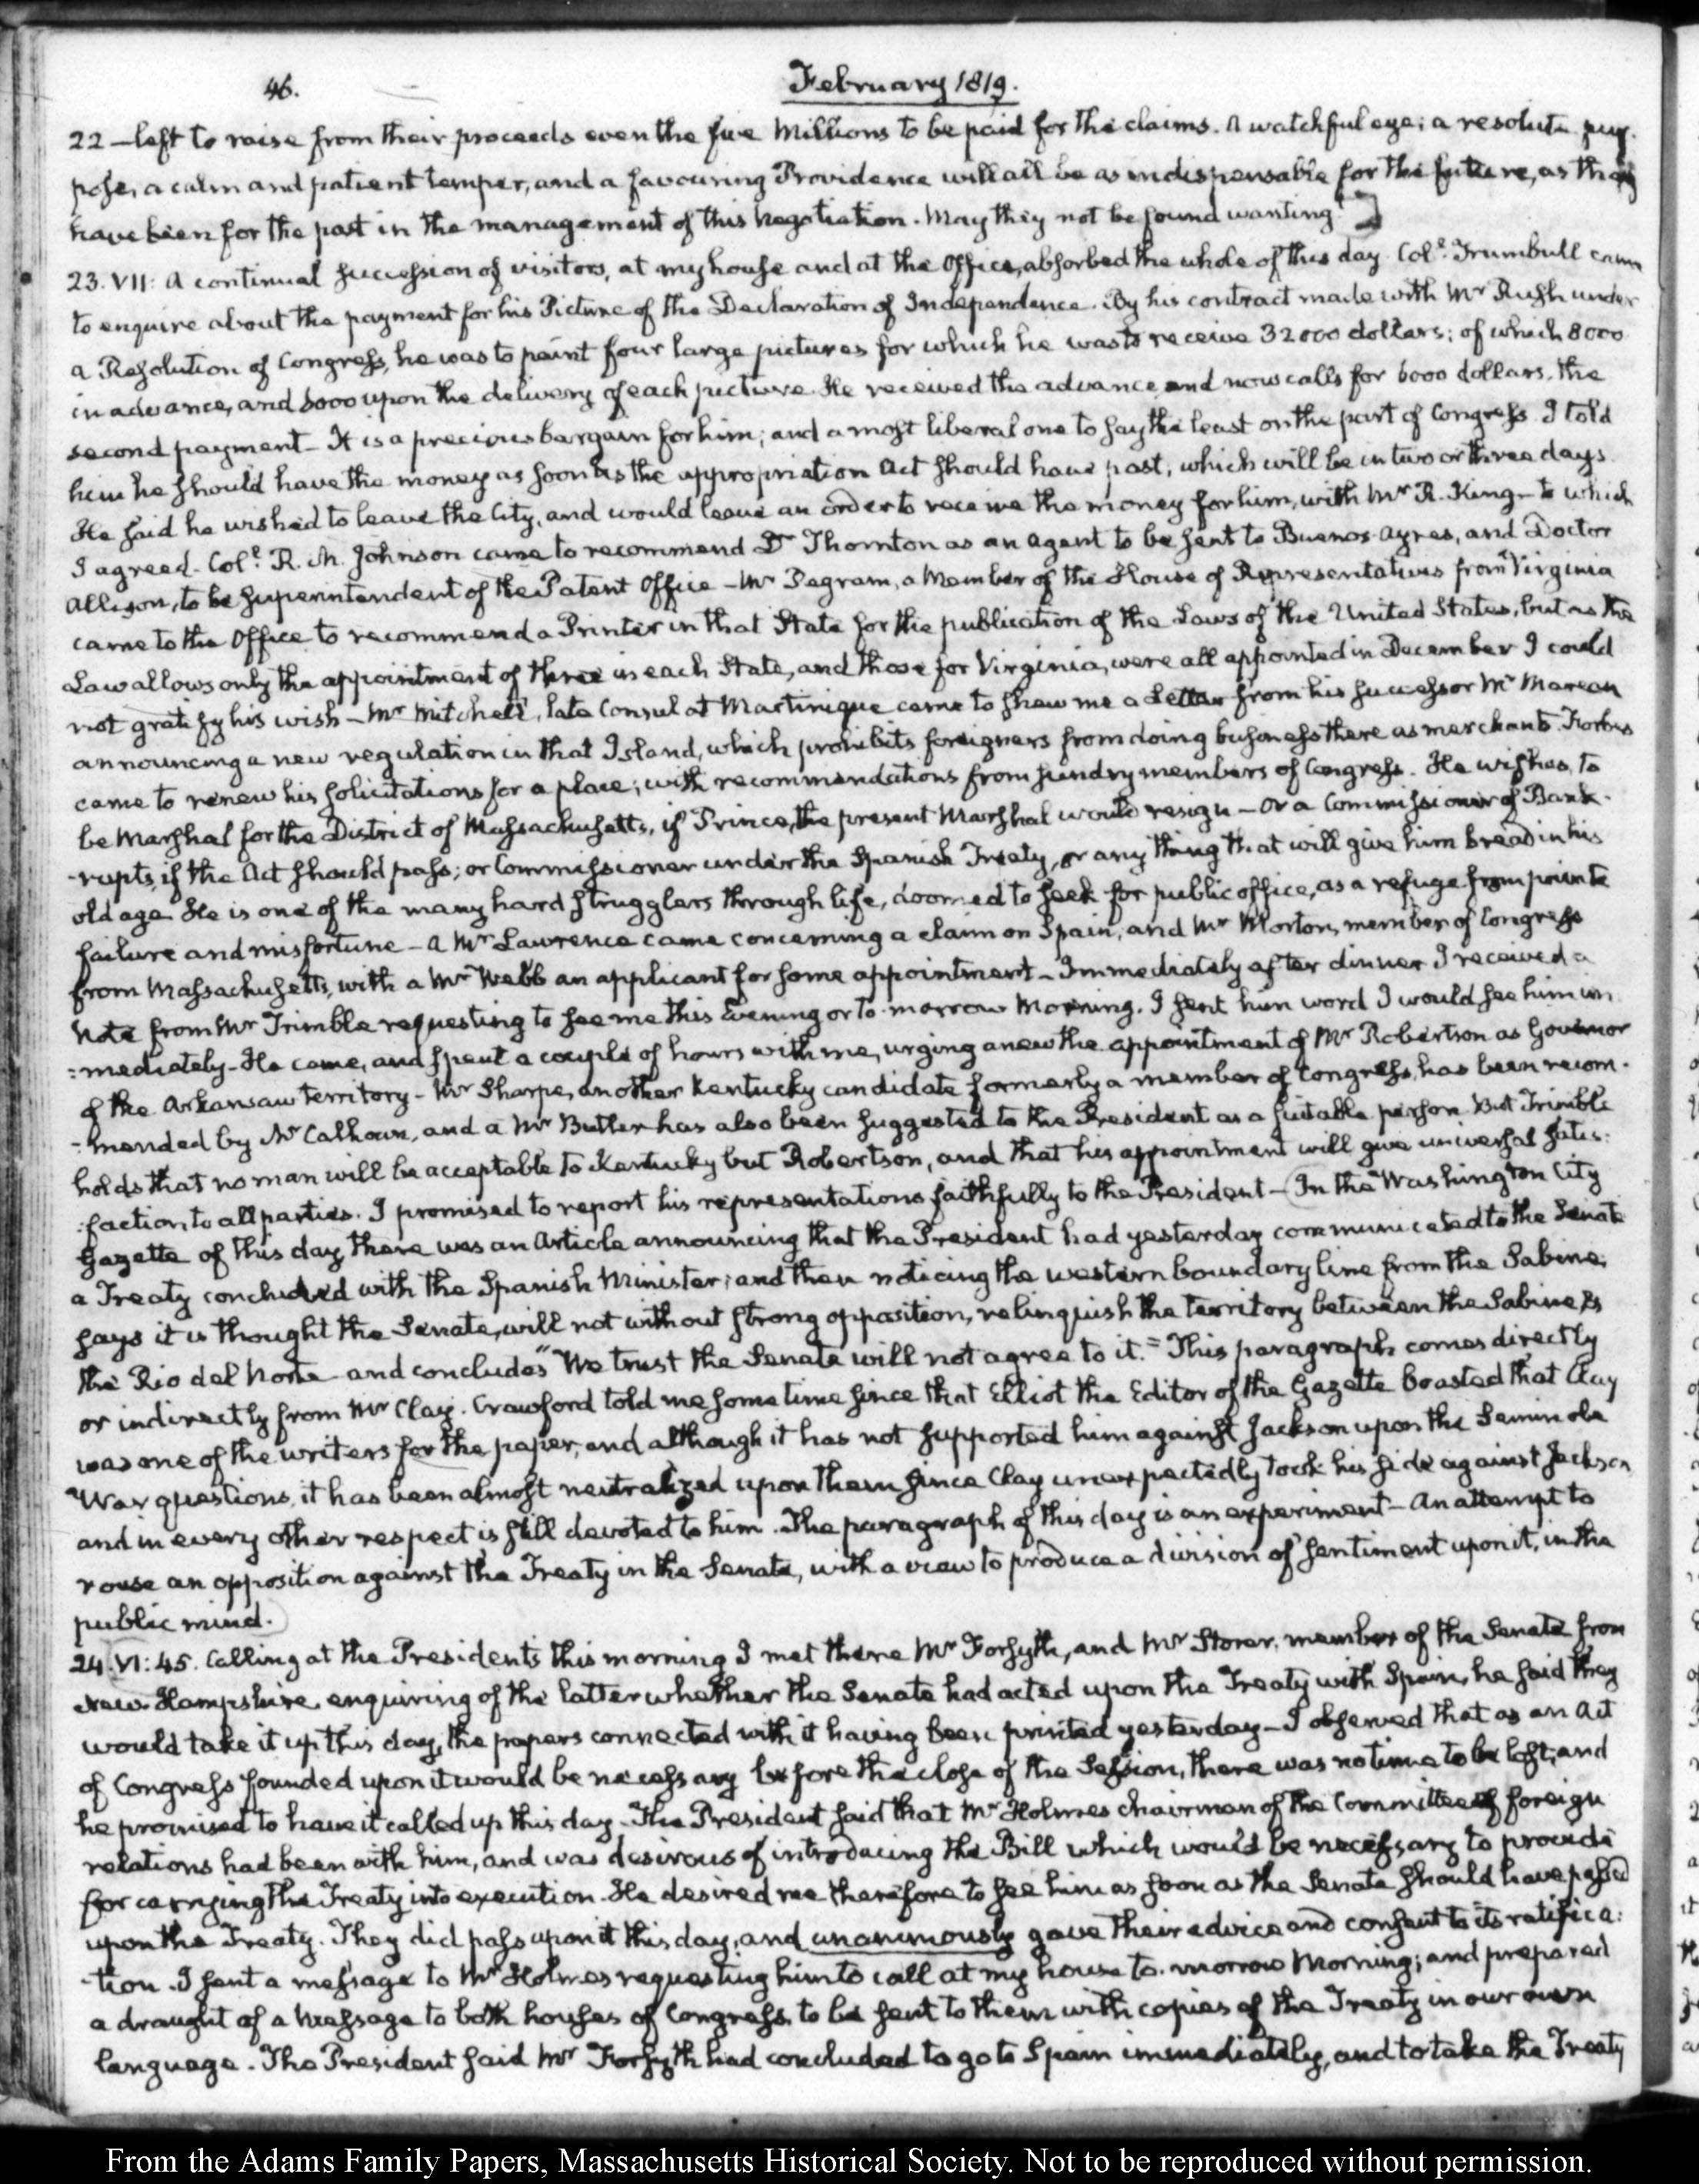 46.
February 1819.
22 — left to raise from their proceeds even the five Millions to be paid for the claims. A watchful eye; a resolute pur-
pose, a calm and patient temper, and a favouring Providence will all be as indispensable for the future, as they
have been for the past in the management of this Negotiation. May they not be found wanting! ]
23. VII: A continual succession of visitors, at my house and at the Office, absorbed the whole of this day. Col.l Trumbull came
to enquire about the payment for his Picture of the Declaration of Independence. By his contract made with Mr Rush under
a Resolution of Congress, he was to paint four large pictures for which he was to receive 32000 dollars; of which 8000
in advance, and 6000 upon the delivery of each picture. He received the advance, and now calls for 6000 dollars, the
second payment — It is a precious bargain for him; and a most liberal one to say the least on the part of Congress. I told
him he should have the money as soon as the appropriation Act should have past, which will be in two or three days.
He said he wished to leave the City, and would leave an order to receive the money for him, with Mr R. King — to which
I agreed. Col.l R. M. Johnson came to recommend Dr Thornton as an Agent to be sent to Buenos-Ayres, and Doctor
Allison, to be Superintendent of the Patent Office — Mr Pegram, a Member of the House of Representatives from Virginia
came to the Office to recommend a Printer in that State for the publication of the Laws of the United States, but as the
Law allows only the appointment of three in each State, and those for Virginia, were all appointed in December I could
not gratify his wish — Mr Mitchell, late Consul at Martinique came to shew me a Letter from his successor Mr Marcan
announcing a new regulation in that Island, which prohibits foreigners from doing business there as merchants. Forbes
came to renew his solicitations for a place; with recommendations from sundry members of Congress. He wishes, to
be Marshal for the District of Massachusetts, if Prince, the present Marshal would resign — Or a Commissioner of Bank-
-rupts, if the Act should pass; or Commissioner under the Spanish Treaty, or any thing that will give him bread in his
old age. He is one of the many hard strugglers through life, doomed to seek for public office, as a refuge from private
failure and misfortune — A Mr Lawrence came concerning a claim on Spain, and Mr Morton, member of Congress
from Massachusetts, with a Mr Webb an applicant for some appointment — Immediately after dinner I received a
Note from Mr Trimble requesting to see me this Evening or to-morrow Morning. I sent him word I would see him im
=mediately — He came, and spent a couple of hours with me, urging anew the appointment of Mr Robertson as Governor
of the Arkansaw territory — Mr Sharpe, another Kentucky candidate formerly a member of Congress, has been recom-
=mended by Mr Calhoun, and a Mr Butler has also been suggested to the President as a suitable person. But Trimble
holds that no man will be acceptable to Kentucky but Robertson, and that his appointment will give universal satis:
:faction to all parties. I promised to report his representations faithfully to the President — (In the Washington City
Gazette of this day there was an Article announcing that the President had yesterday communicated to the Senate
a Treaty concluded with the Spanish Minister; and then noticing the western boundary line from the Sabine,
says it is thought the Senate, will not without strong opposition, relinquish the territory between the Sabine, &
the Rio del Norte and concludes "We trust the Senate will not agree to it." This paragraph comes directly
or indirectly from Mr Clay. Crawford told me some time since that Elliot the Editor of the Gazette boasted that Clay
was one of the writers for the paper, and although it has not supported him against Jackson upon the Seminole
War questions, it has been almost neutralized upon them since Clay unexpectedly took his side against Jackson
and in every other respect is still devoted to him. The paragraph of this day is an experiment — An attempt to
rouse an opposition against the Treaty in the Senate, with a view to produce a division of sentiment upon it, in the
public mind.)
24. VI: 45. Calling at the President's this morning I met there Mr Forsyth, and Mr Storer, member of the Senate from
New-Hampshire, enquiring of the latter whether the Senate had acted upon the Treaty with Spain, he said they
would take it up this day, the papers connected with it having been printed yesterday — I observed that as an Act
of Congress founded upon it would be necessary before the close of the Session, there was no time to be lost, and
he promised to have it called up this day — The President said that Mr Holmes chairman of the Committee of foreign
relations had been with him, and was desirous of introducing the Bill which would be necessary to provide
for carrying the Treaty into execution. He desired me therefore to see him as soon as the Senate should have passed
upon the Treaty. They did pass upon it this day, and unanimously gave their advice and consent to its ratifica:
-tion. I sent a message to Mr Holmes requesting him to call at my house to-morrow Morning; and prepared
a draught of a Message to both houses of Congress, to be sent to them with copies of the Treaty in our own
language. The President said Mr Forsyth had concluded to go to Spain immediately, and to take the Treaty
From the Adams Family Papers, Massachusetts Historical Society. Not to be reproduced without permission.